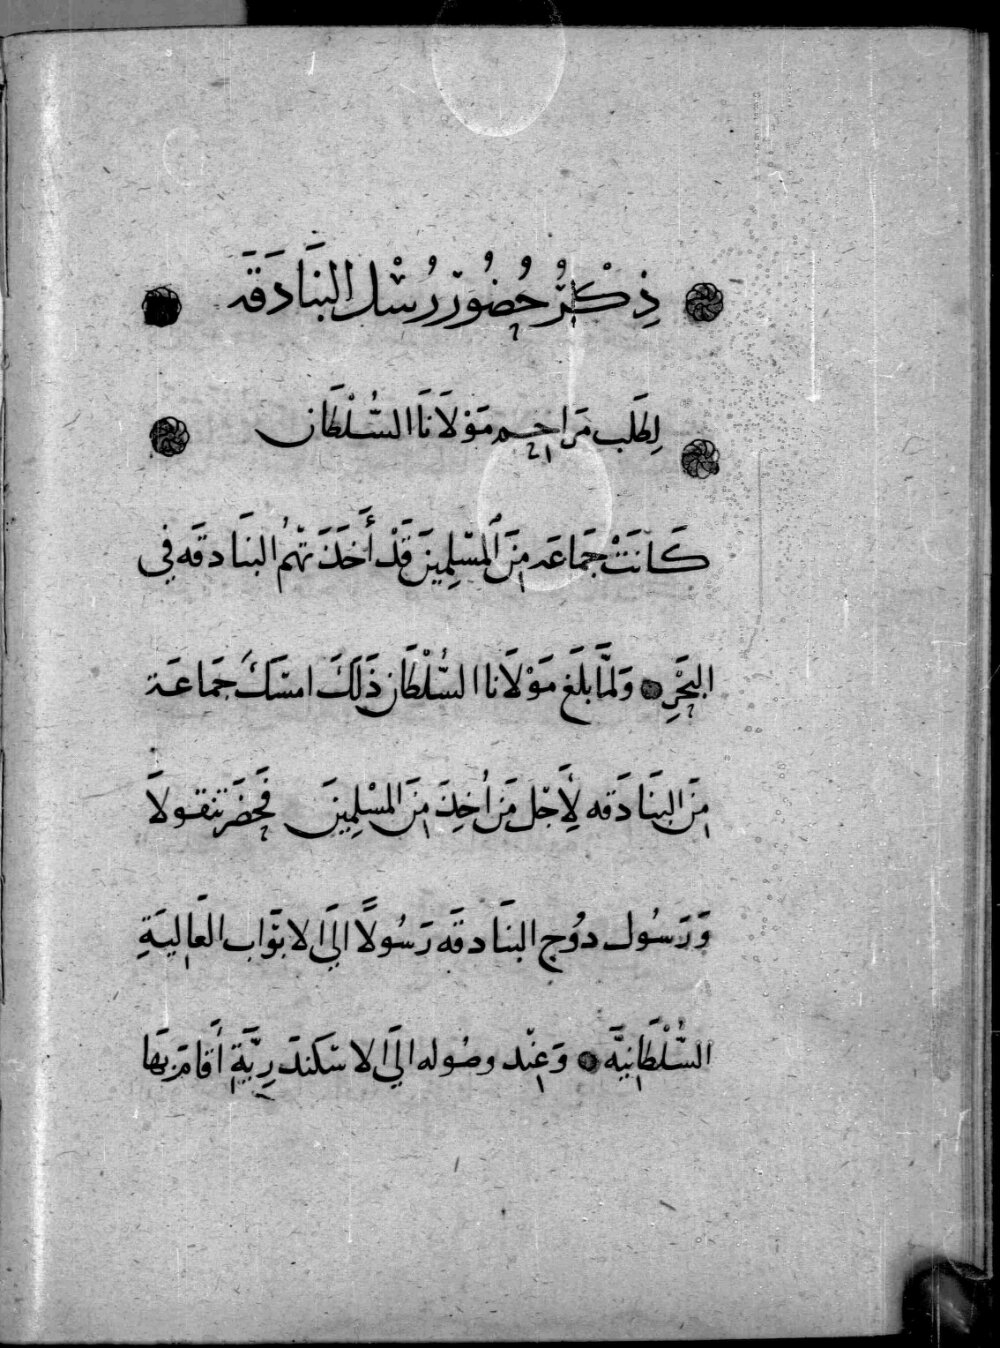 ذِكْرُ حُضُور رُسْل البنَادَقَه
لِطَلب مَرَاحِم مَوْلَانَا السُّلْطَان
كَانَتْ جَمَاعَه مِنَ الْمسْلِمِينَ قَدْ أَخَذَتهُم البنَادقَه في
البَحْرِ وَلَمَّا بَلَغ مَوْلَانا السُّلْطَان ذَلَكَ امسَكَ جَمَاعَة
مِنَ البنَادَقه لِأَجْل مَن اُخِذَ مِنَ المسْلِمِينَ فَحَضَر تنقولَا
وَرَسُول دوُج البنَادقَه رَسُولًا الَي الابوَاب العَاليَةِ
السُّلْطَانِيَّه وَعِنْد وصُوله الَي الاسْكندَرِيَّةِ أَقَامَ بَهَا